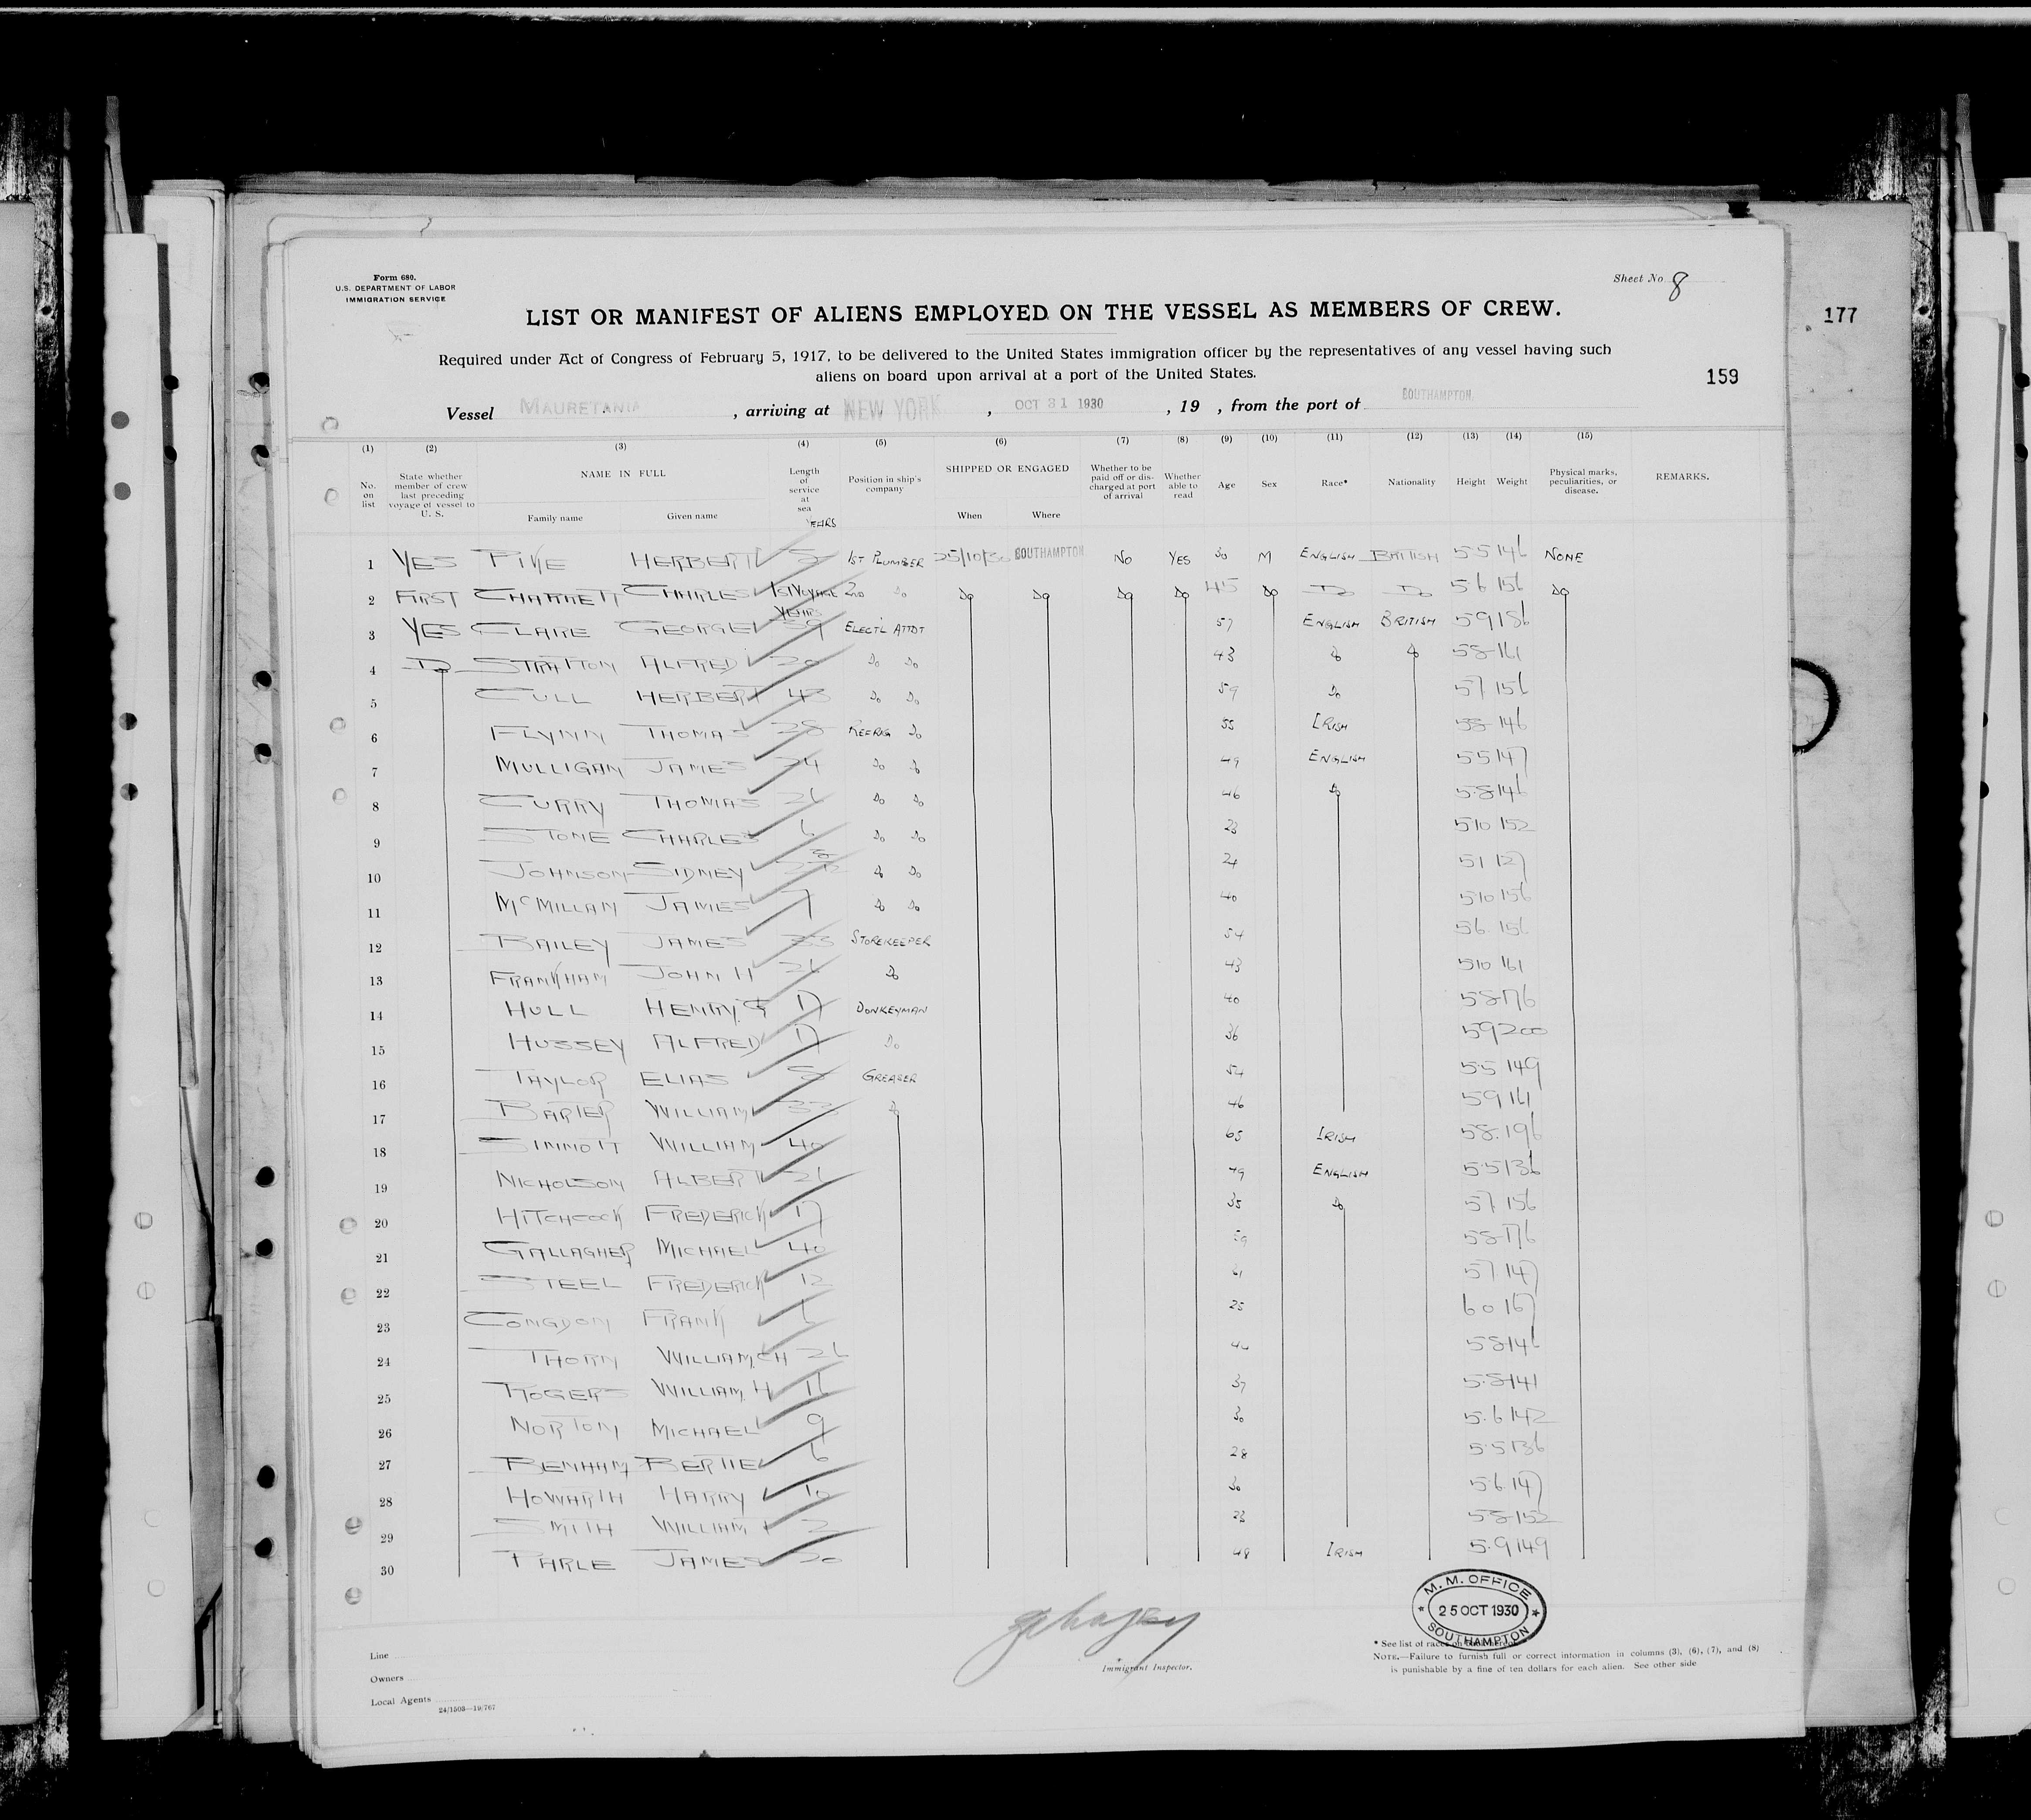 Form 680.
U.S. DEPARTMENT OF LABOR
IMMIGRATION SERVICE
Sheet No 8
LIST OR MANIFEST OF ALIENS EMPLOYED ON THE VESSEL AS MEMBERS OF CREW.
177
Required under Act of Congress of February 5, 1917, to be delivered to the United States immigration officer by the representatives of any vessel having such
aliens on board upon arrival at a port of the United States.
159
Vessel MAURETANIA, arriving at NEW YORK, OCT 31 1930, 19 , from the port of SOUTHAMPTON.
(1) (2) (3) (4) (5) (6) (7) (8) (9) (10) (11) (12) (13) (14) (15)
No. on list State whether member of crew last preceding voyage of vessel to U. S. NAME IN FULL Family name Given name Length of service at sea YEARS Position in ship's company SHIPPED OR ENGAGED When Where Whether to be paid off or discharged at port of arrival Whether able to read Age Sex Race* Nationality Height Weight Physical marks, peculiarities, or disease. REMARKS.
1 YES HERBERT 5 1ST PLUMBER 25/10/30 SOUTHAMPTON NO YES 30 M ENGLISH BRITISH 5 5 146 NONE
2 FIRST CHARLES 1ST VOYAGE 2ND Do Do Do Do Do 45 Do Do Do 5 6 156 Do
3 YES CLARE GEORGE YEARS ELECT'L ATTDT 57 ENGLISH BRITISH 5 9 186
4 Do STRATTON ALFRED 20 Do Do 43 Do Do 5 8 161
5 CULL HERBERT 43 Do Do 59 Do 5 7 156
6 FLYNN THOMAS 28 REFRG Do 55 IRISH 5 8 146
7 MULLIGAN JAMES 24 Do Do 49 ENGLISH 5 5 147
8 CURRY THOMAS 26 Do Do 46 Do 5.8 146
9 STONE CHARLES 6 Do Do 23 5 10 152
10 JOHNSON SIDNEY Do Do 24 5 1 127
11 McMILLAN JAMES 7 Do Do 40 5 10 156
12 BAILEY JAMES 33 STOREKEEPER 54 5 6 156
13 FRANKHAM JOHN H 26 Do 43 5 10 161
14 HULL HENRY G 17 DONKEYMAN 40 5 8 176
15 HUSSEY ALFRED 17 Do 36 5 9 200
16 TAYLOR ELIAS 8 GREASER 54 5 5 149
17 BARTER WILLIAM 32 Do 46 5 9 161
18 SINNOTT WILLIAM 40 65 IRISH 5 8 196
19 NICHOLSON ALBERT 26 49 ENGLISH 5 5 136
20 HITCHCOCK FREDERICK 17 35 Do 5 7 156
21 GALLAGHER MICHAEL 40 59 5 8 176
22 STEEL FREDERICK 12 61 5 7 147
23 CONGDON FRANK 6 25 6 0 167
24 THORN WILLIAM C H 26 5 8 146
25 ROGERS WILLIAM H 16 37 5.8 141
26 NORTON MICHAEL 9 30 5.6 142
27 BENHAM BERTIE 6 28 5 5 136
28 HOWARTH HARRY 10 30 5 6 147
29 SMITH WILLIAM 2 23 5 8 152
30 PARLE JAMES 20 48 IRISH 5.9 149
M. M. OFFICE
25 OCT 1930
SOUTHAMPTON
Immigrant Inspector.
* See list of races on
NOTE.—Failure to furnish full or correct information in columns (3), (6), (7), and (8)
is punishable by a fine of ten dollars for each alien. See other side
Line
Owners
Local Agents
24/1503—19/767